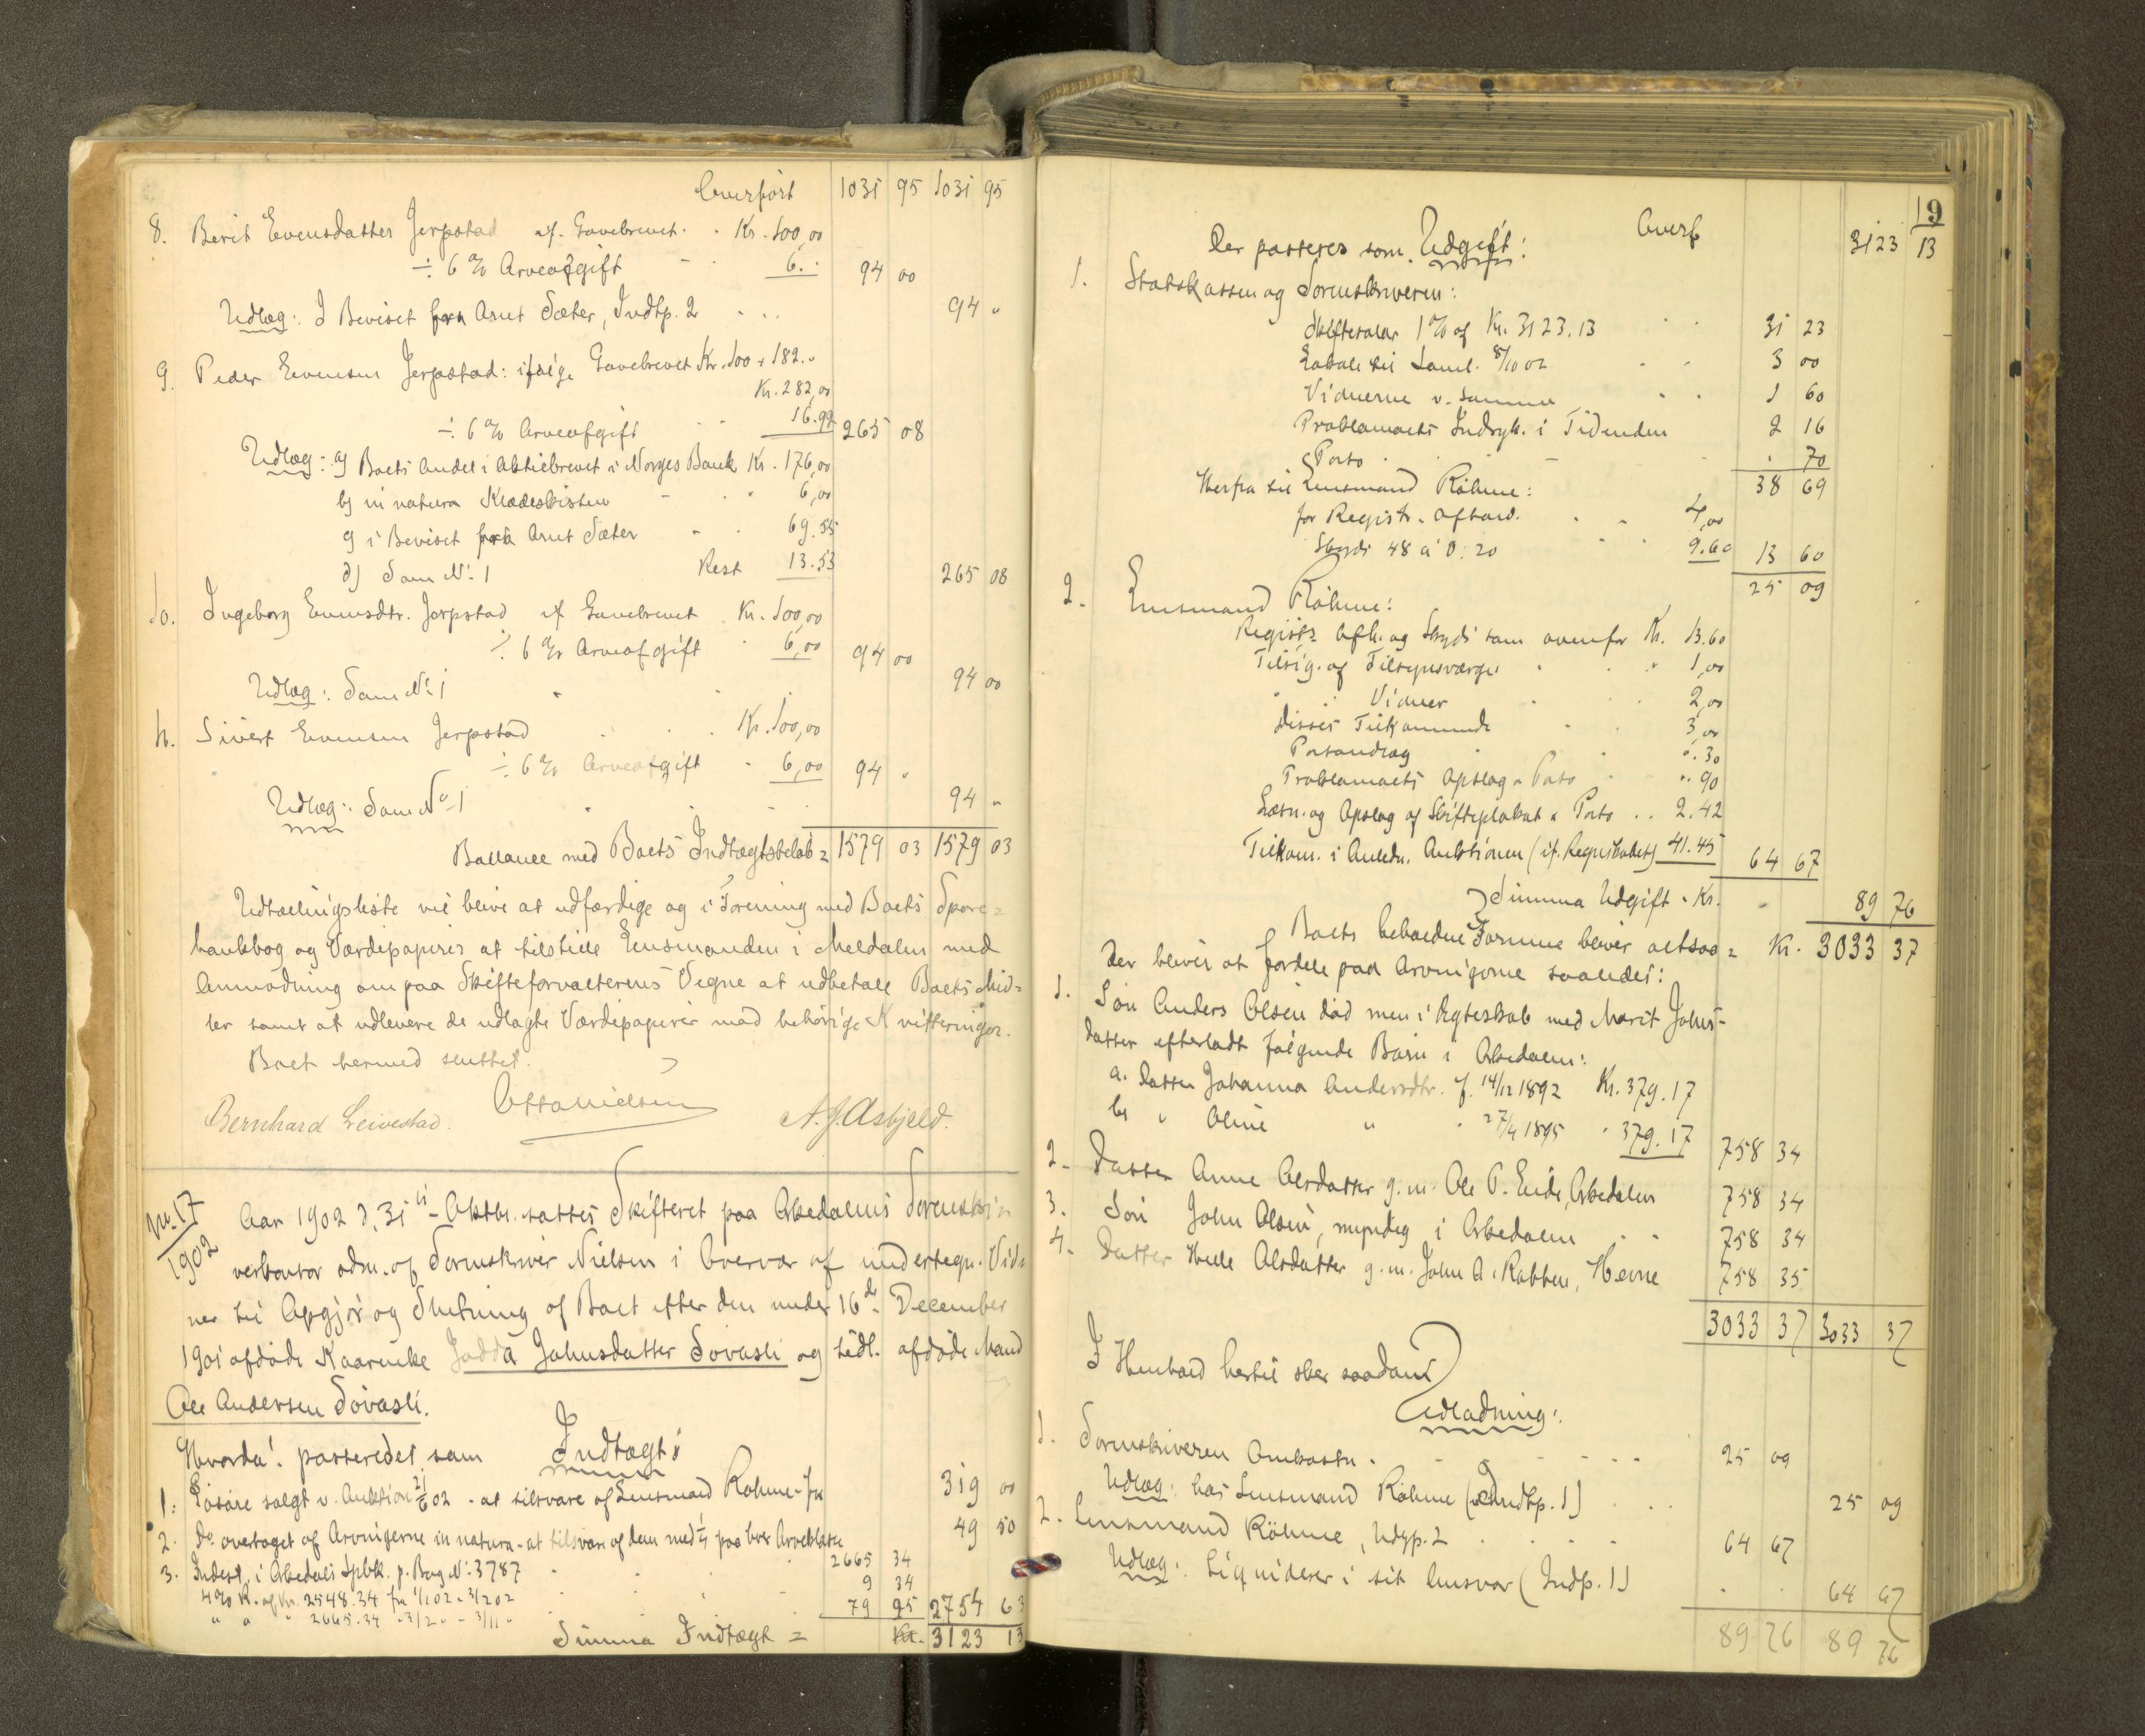 Overført 1031 95 1031 95
8. Berit Evensdatter Jerpstad if. Gavebrevet. . Kr. 100,00
÷ 6 % Arveafgift - 6. " 94 00
Udlæg: I Beviset fra Arnt Sæter, Indtp. 2 . . . 94 "
9. Peder Evensen Jerpstad: ifølge Gavebrevet Kr. 100 + 182. "
Kr. 282,00
÷ 6 % Arveafgift 16.92 265 08
Udlæg: a) Boets Andel i Aktiebrevet i Norges Bank Kr. 176,00
b) in natura Klædeskisten 6,00
c) i Beviset fra Arnt Sæter 69.55
d) Som No 1 Rest 13.53 265 08
10. Ingeborg Evensdtr. Jerpstad if Gavebrevet Kr. 100,00
÷ 6 % Arveafgift 6,00 94 00
Udlæg: Som No 1 94 00
11. Sivert Evensen Jerpstad Kr. 100,00
÷ 6 % Arveafgift 6,00 94 "
Udlæg: Som No 1 94 "
Ballance med Boets Indtægtsbeløb = 1579 03 1579 03
Udtællingsliste vil blive at udfærdige og i Forening med Boets Spare=
bankbog og Værdipapirer at tilstille Lensmanden i Meldalen med
Anmodning om paa Skifteforvalterens Vegne at udbetale Boets Mid=
ler samt at udlevere de udlagte Værdipapirer mod behørige Kvitteringer.
Boet hermed sluttet.
Otto Nielsen
Bernhard Leivestad. A. J. Asbjeld.
No. 17
1902
Aar 1902 d. 31te Oktbr. sattes Skifteret paa Orkedalens Sorenskri=
verkontor adm. af Sorenskriver Nielsen i Overvær af undertegn. Vid=
ner til Opgjør og Slutning af Boet efter den under 16de December
1901 afdøde Kaarenke Jodda Johnsdatter Sovasli og tidl. afdøde Mand
Ole Andersen Sovasli.
Hvorda: passeredes som Indtægt:
1. Løsøre solgt v. Auktion 21/6 02 - at tilsvare af Lensmand Röhme - Kr. 319 00
2. Do overtaget af Arvingerne in natura - at tilsvare af dem med 1/4 paa hver Arveklasse 49 50
3. Indest. i Orkedals Spbk. p. Bog No: 3787 2665 34
4 % R. af Kr. 2548.34 fra 1/1 02 - 3/2 02 9 34
" " " 2665.34 - 3/2 " - 3/11 " 79 95 2754 63
Summa Indtægt = Kr. 3123 13
19
Overf 3123 13
Der passeres som Udgift:
1. Statskassen og Sorenskriveren:
Skiftesalær 1 % af Kr. 3123.13 31 23
Kabale til Saml. 8/10 02 3 00
Vidnerne v. samme 1 60
Proklamaets Indryk. i Tidenden 2 16
Porto " 70
38 69
Herfra til Lensmand Röhme:
for Registr. afhold. 4,00
Skyds 48 à 0:20 9.60 13 60
25 09
2. Lensmand Röhme:
Registr. Afh. og Skyds som ovenfor Kr. 13.60
Tilsig. af Tilsynsværge " 1,00
" " Vidner 2,00
Disses Tilkommende 3,00
Portoudlæg ". 30
Proklamaets Opslag + Porto ". 90
Læsn. og Opslag af Skifteplakat + Porto .. 2.42
Tilkom. i Anledn. Auktionen (if. Regnskabet) 41.45 64 67
Summa Udgift - Kr. 89 76
Boets beholdne Formue bliver altsaa = Kr. 3033 37
Der bliver at fordele paa Arvingerne saaledes:
1. Søn Anders Olsen død men i Ægteskab med Marit Johns-
datter efterladt følgende Børn i Orkedalen:
a. Datter Johanna Andersdtr. f. 14/12 1892 Kr. 379.17
b. " Oline " " 27/4 1895 " 379.17 758 34
2. Datter Anne Olsdatter g. m. Ole P. Eide, Orkedalen 758 34
3. Søn John Olsen, myndig i Orkedalen 758 34
4. Datter Olsdatter g. m. John A. Rabben, Hevne 758 35
3033 37 3033 37
I Henhold hertil sker saadan
Udlodning:
1. Sorenskriveren Omkostn. 25 09
Udlæg: hos Lensmand Röhme (Indtp. 1) 25 09
2. Lensmand Röhme, Udgp. 2 64 67
Udlæg: Likviderer i sit Ansvar (Indtp. 1) 64 67
89 76 89 76